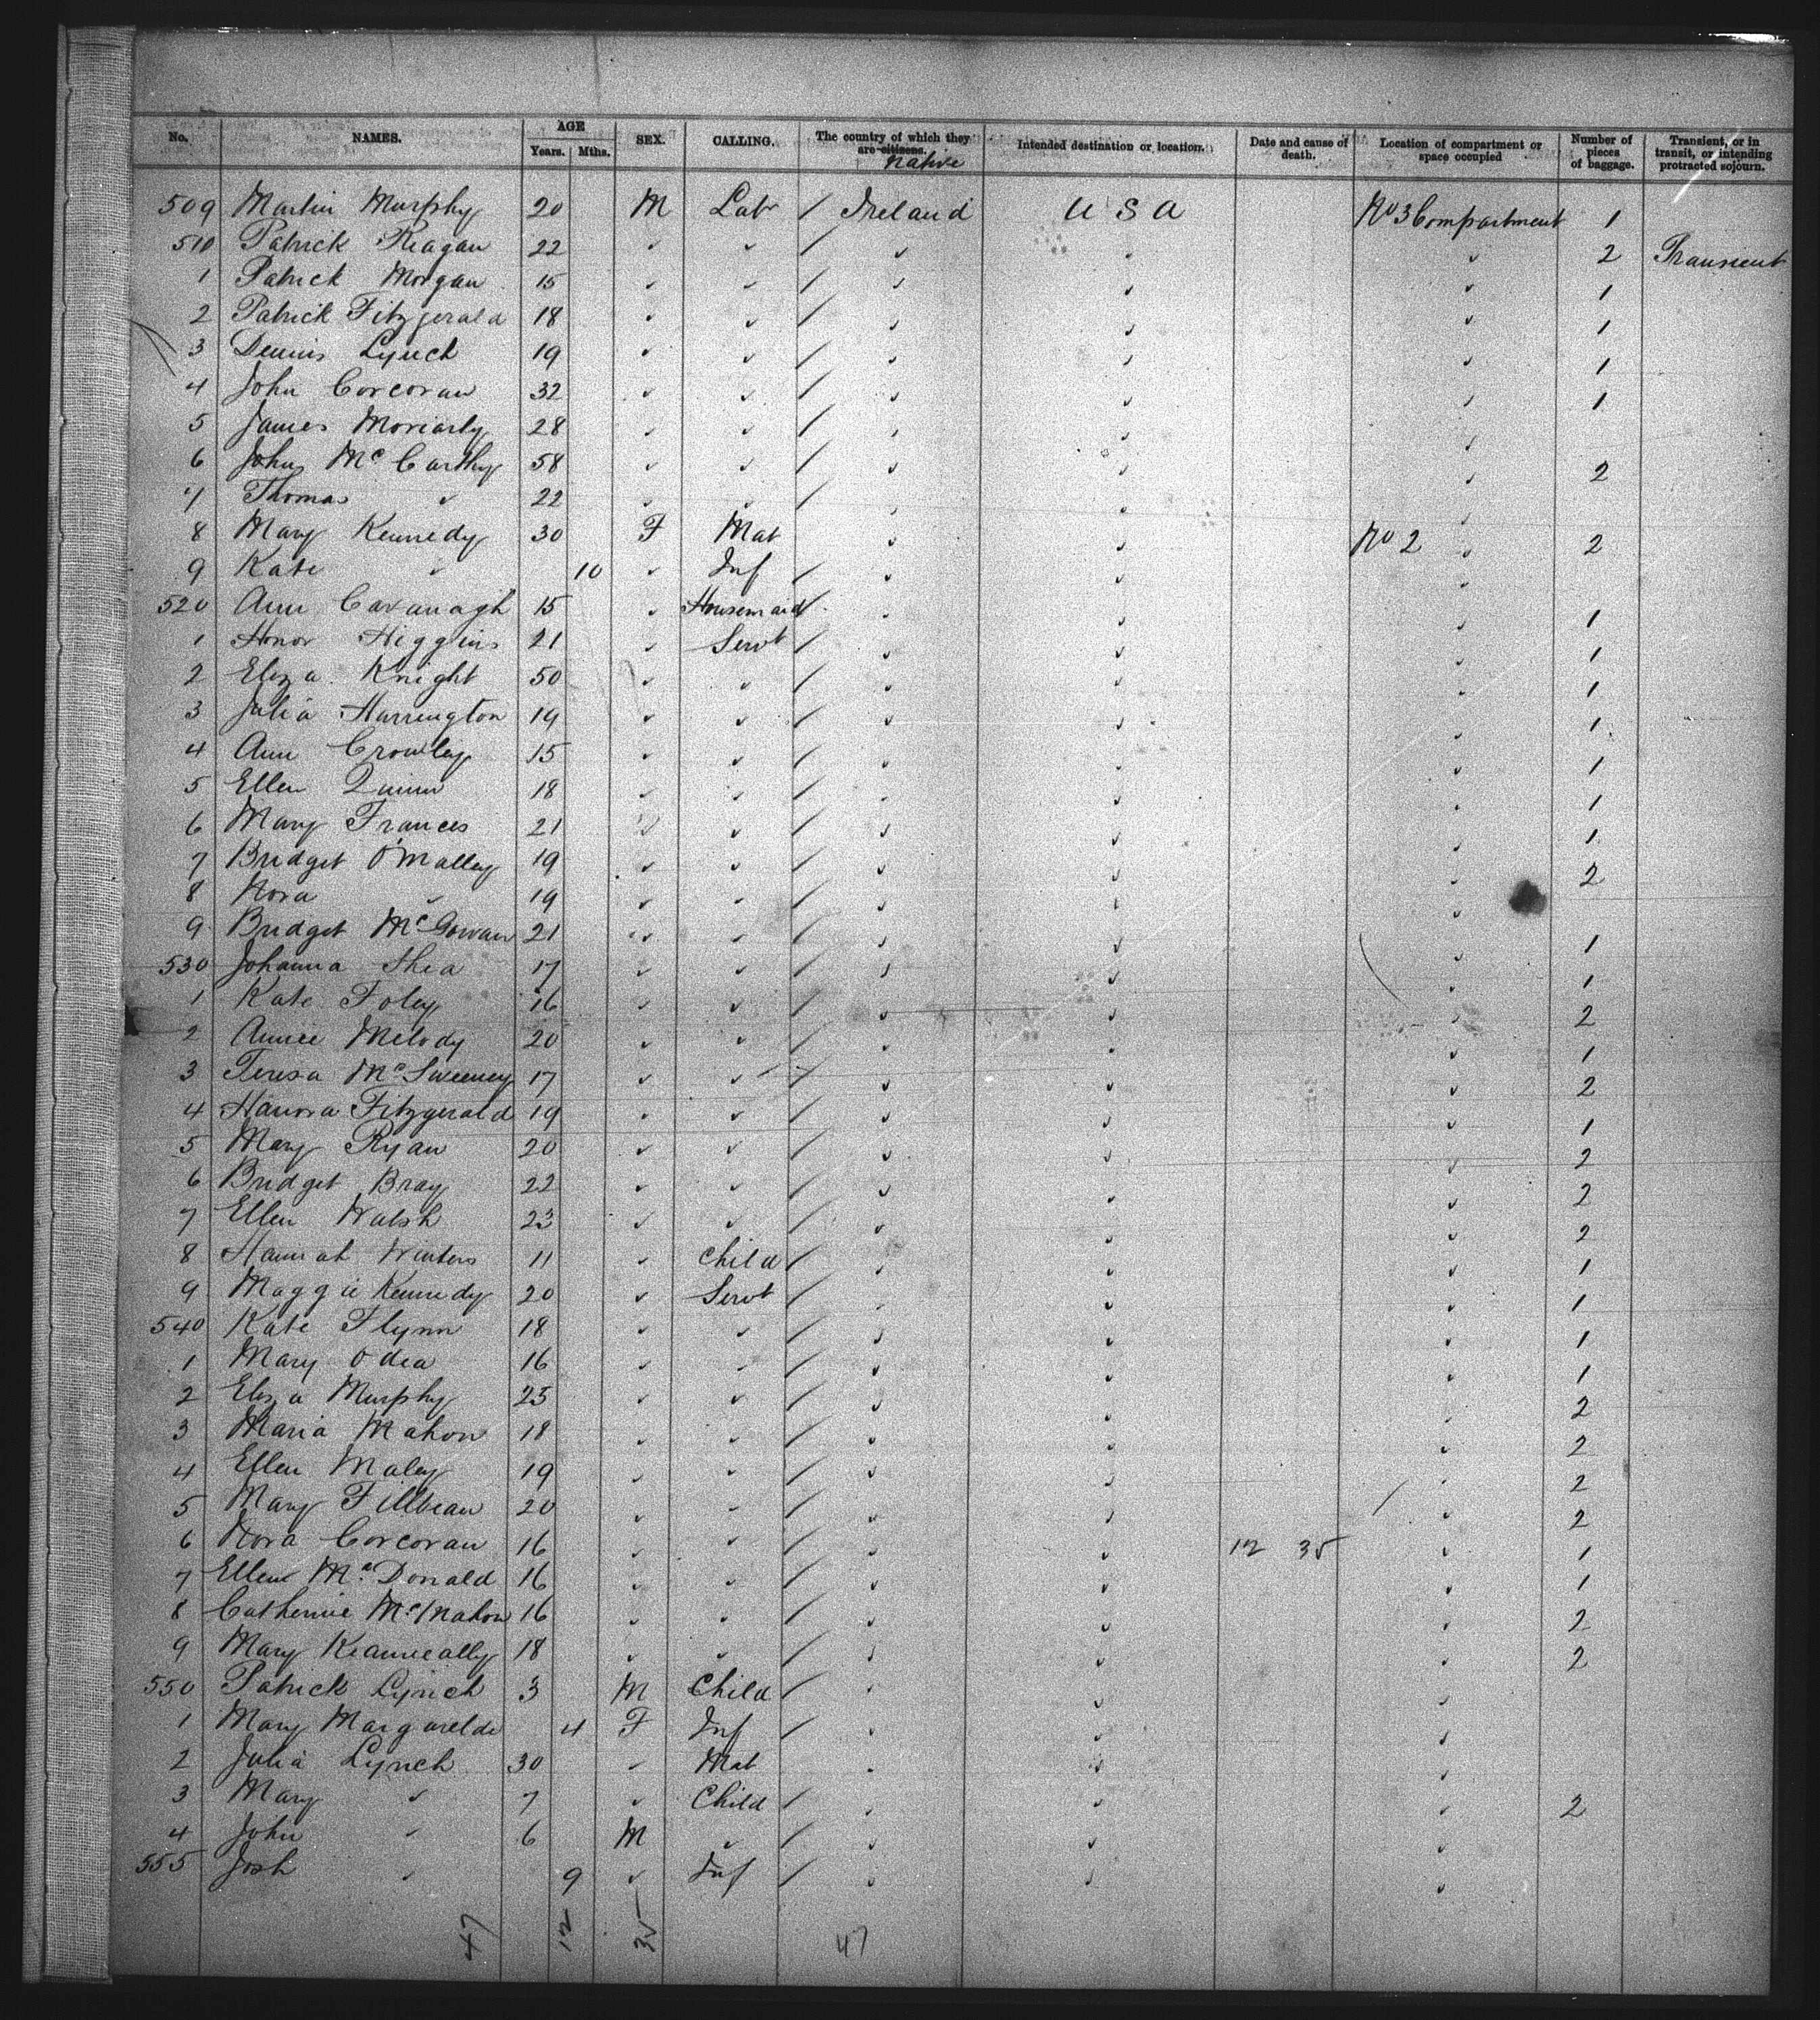 No. NAMES. AGE Years. Mths. SEX. CALLING. The country of which they are citizens. native Intended destination or location. Date and cause of death. Location of compartment or space occupied Number of pieces of baggage. Transient, or in transit, or intending protracted sojourn.
509 Martin Murphy 20 M Labr / Ireland U S A No 3 Compartment 1
510 Patrick Reagan 22 " " / " " " 2 Transient
1 Patrick Morgan 15 " " / " " " 1
2 Patrick Fitzgerald 18 " " / " " " 1
3 Dennis Lynch 19 " " / " " " 1
4 John Corcoran 32 " " / " " " 1
5 James Moriarty 28 " " / " " "
6 John Mc Carthy 58 " " / " " " 2
7 Thomas " 22 " " / " " "
8 Mary Kennedy 30 F Mat " " No 2 " 2
9 Kate " 10 " Inf / " " "
520 Ann Cavanagh 15 " Housemaid / " " " 1
1 Honor Higgins 21 " Servt / " " " 1
2 Eliza Knight 50 " " / " " " 1
3 Julia Harrington 19 " " / " " " 1
4 Ann Crowley 15 " " / " " " 1
5 Ellen Quinn 18 " " / " " " 1
6 Mary Frances 21 " " / " " " 1
7 Bridget O'Malley 19 " " / " " " 2
8 Nora " 19 " " / " " "
9 Bridget McGowan 21 " " / " " " 1
530 Johanna Shea 17 " " / " " " 1
1 Kate Foley 16 " " / " " " 2
2 Annie Melody 20 " " / " " " 1
3 Teresa McSweeney 17 " " / " " " 2
4 Hanora Fitzgerald 19 " " / " " " 1
5 Mary Ryan 20 " " / " " " 2
6 Bridget Bray 22 " " / " " " 2
7 Ellen Walsh 23 " " / " " " 2
8 Hannah Winters 11 " Child / " " " 1
9 Maggie Kennedy 20 " Servt / " " " 1
540 Kate Flynn 18 " " / " " " 1
1 Mary Odea 16 " " / " " " 1
2 Eliza Murphy 23 " " / " " " 2
3 Maria Mahon 18 " " / " " " 2
4 Ellen Maley 19 " " / " " " 2
5 Mary 20 " " / " " " 2
6 Nora Corcoran 16 " " / " " 12 35 " 1
7 Ellen McDonald 16 " " / " " " 1
8 Catherine McMahon 16 " " / " " " 2
9 Mary Keanneally 18 " " / " " " 2
550 Patrick Lynch 3 M Child / " " "
1 Mary 4 F Inf / " " "
2 Julia Lynch 30 " Mat " " "
3 Mary " 7 " Child / " " " 2
4 John " 6 M " / " " "
555 Josh " 9 " Inf / " " "
47 12 35 47